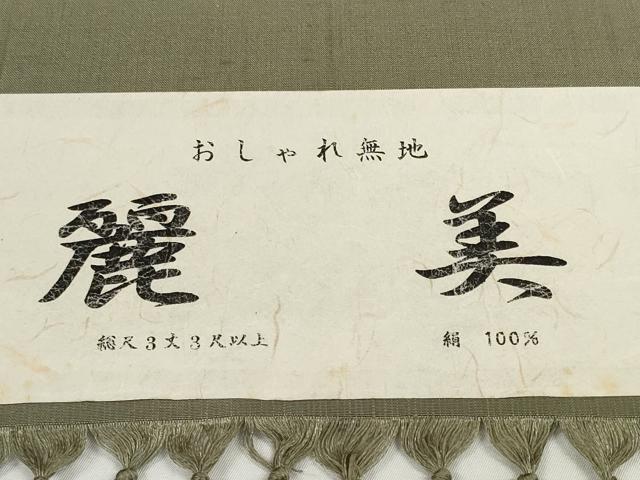 おしゃれ無地
麗 美
総尺3丈3尺以上 絹 100%